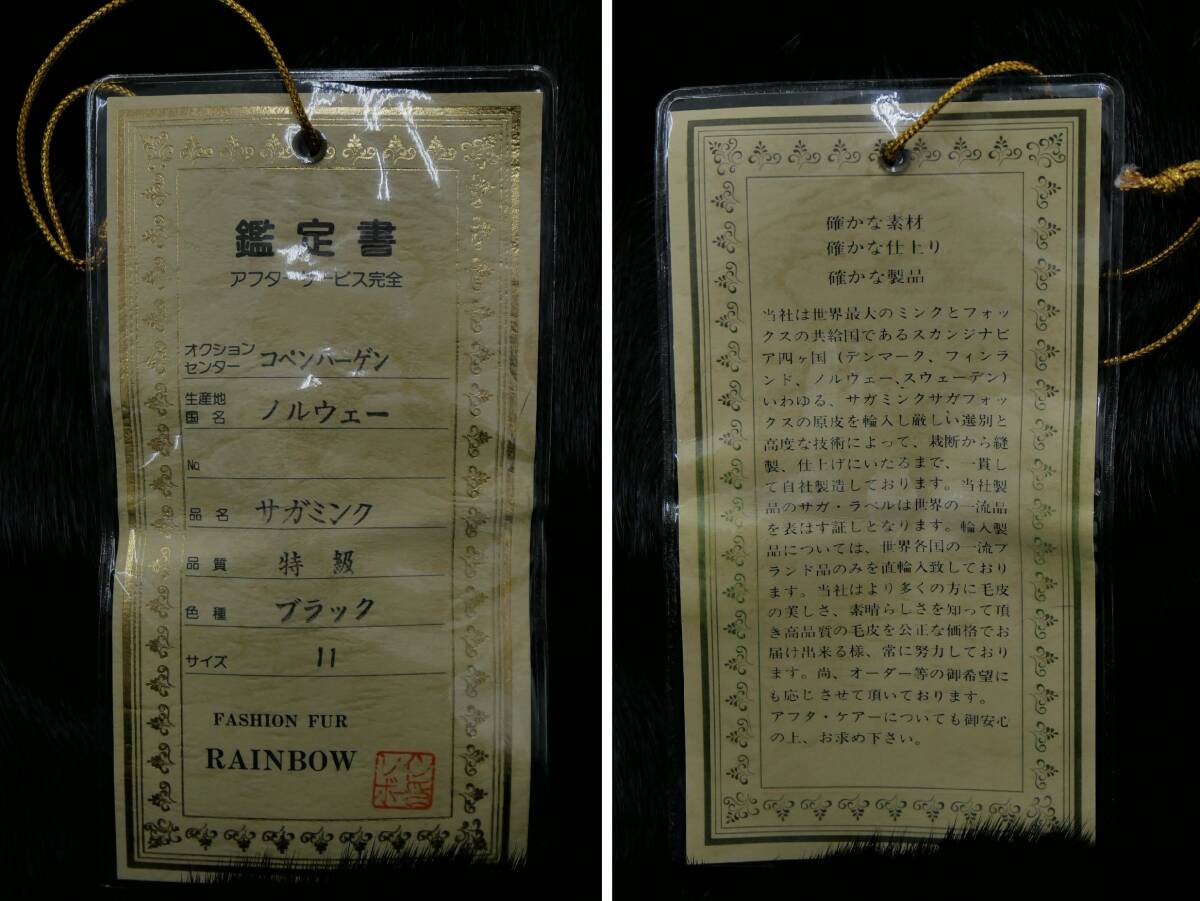 鑑定書
アフターサービス完全
オクション
センター コペンハーゲン
生産地
国名 ノルウェー
No
品名 サガミンク
品質 特級
色種 ブラック
サイズ 11
FASHION FUR
RAINBOW
確かな素材
確かな仕上り
確かな製品
当社は世界最大のミンクとフォッ
クスの共給国であるスカンジナビ
ア四ヶ国(デンマーク、フィンラ
ンド、ノルウェー、スウェーデン)
いわゆる、サガミンクサガフォッ
クスの原皮を輸入し厳しい選別と
高度な技術によって、裁断から縫
製、仕上げにいたるまで、一貫し
て自社製造しております。当社製
品のサガ・ラベルは世界の一流品
を表はす証しとなります。輸入製
品については、世界各国の一流ブ
ランド品のみを直輸入致しており
ます。当社はより多くの方に毛皮
の美しさ、素晴らしさを知って頂
き高品質の毛皮を公正な価格でお
届け出来る様、常に努力しており
ます。尚、オーダー等の御希望に
も応じさせて頂いております。
アフタ・ケアーについても御安心
の上、お求め下さい。